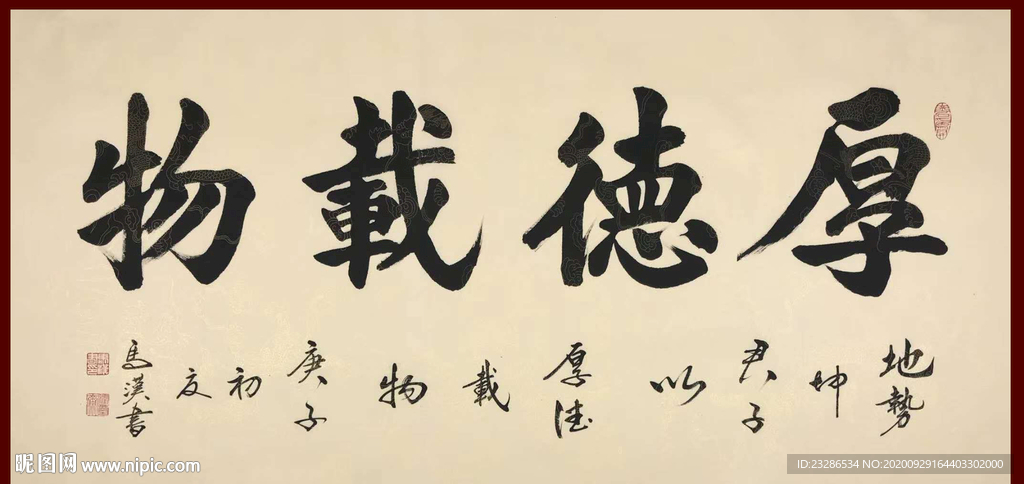 厚德載物
地勢坤君子以厚德載物庚子初夏馬漢書
昵图网 www.nipic.com
ID:23286534 NO:20200929164403302000